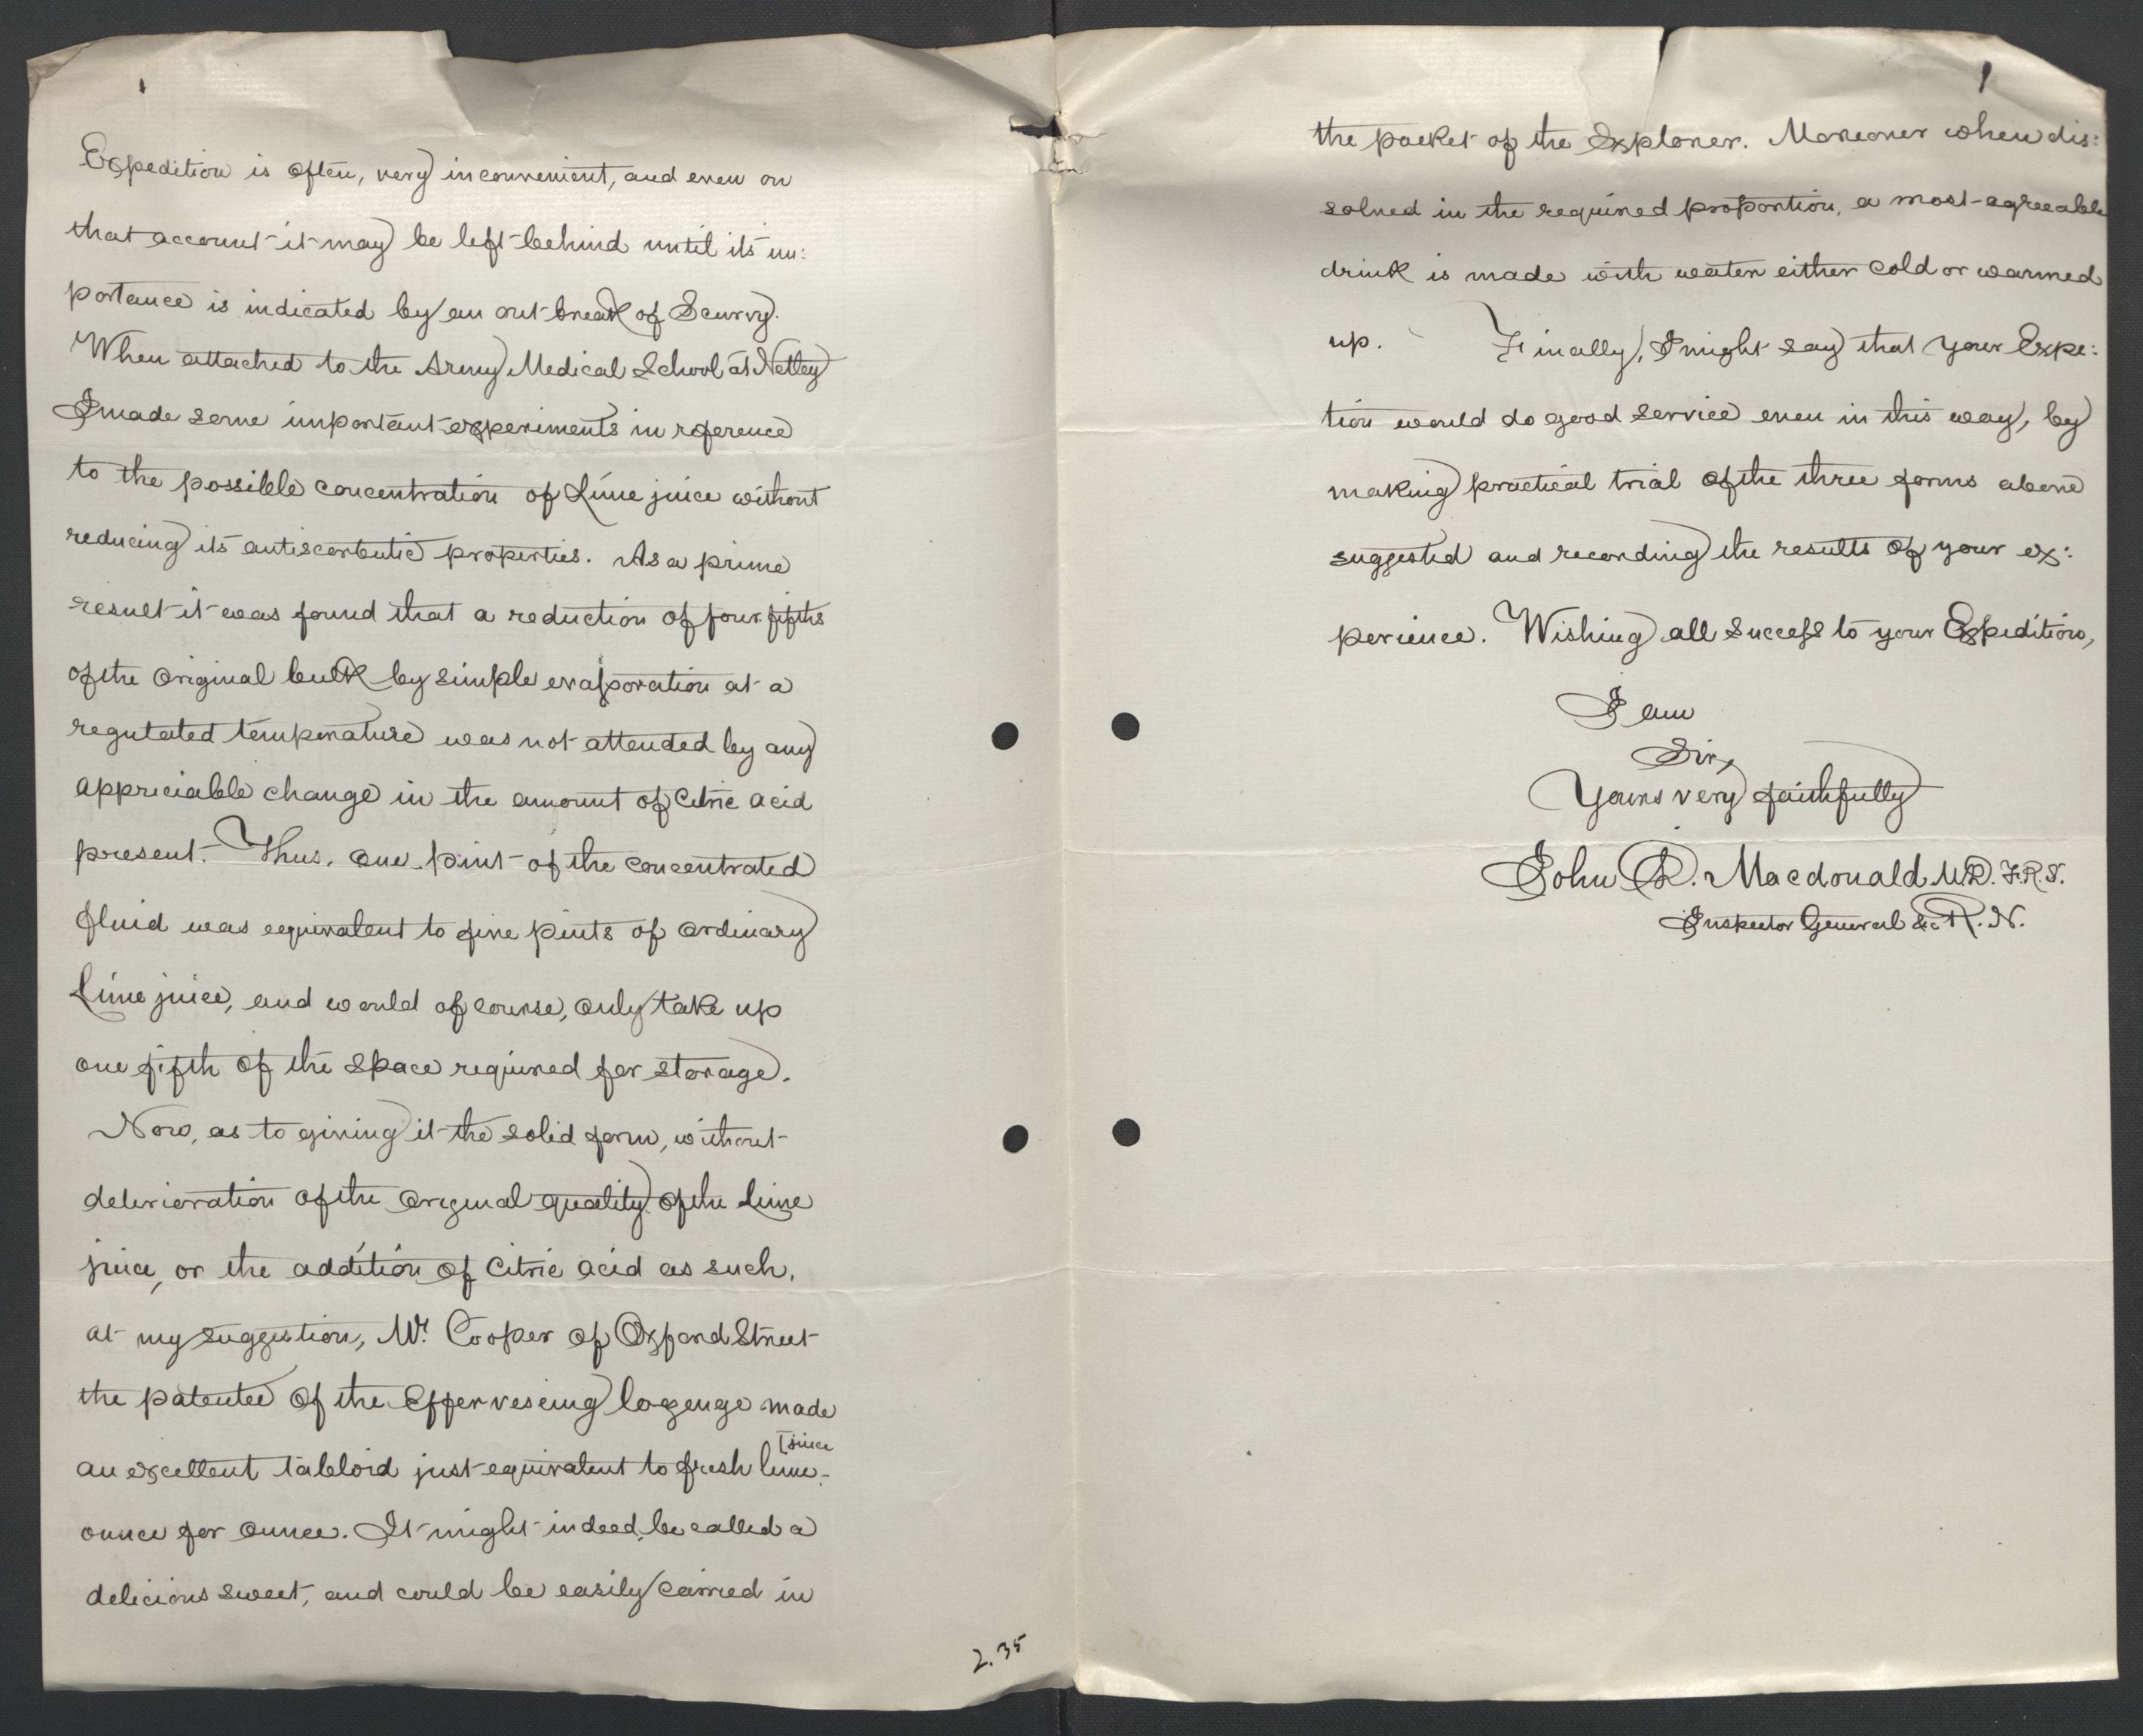 Expedition is often, very inconvenient, and even on
that account it may be left behind until its im:
portance is indicated by an out-break of Scurvy.
When attached to the Army Medical School at Netley
I made some important experiments in reference
to the possible concentration of Lime juice without
reducing its antiscorbutic properties. As a prime
result it was found that a reduction of four fifths
of the original bulk by simple evaporation at a
regulated temperature was not attended by any
appreciable change in the amount of Citric acid
present. Thus, one pint of the concentrated
fluid was equivalent to five pints of ordinary
Lime juice, and would of course, only take up
one fifth of the space required for storage.
Now, as to giving it the solid form, without
deterioration of the original quality of the Lime
juice, or the addition of Citric acid as such,
at my suggestion, Mr. Cooper of Oxford Street
the patentee of the Effervescing lozenge made
[juice
an excellent tabloid just equivalent to fresh lime-
ounce for ounce. It might indeed, be called a
delicious sweet, and could be easily carried in
2.35
the pocket of the Explorer. Moreover when dis:
solved in the required proportion, a most agreeable
drink is made with water either cold or warmed
up. Finally, I might say that your Expe:
tion would do good service even in this way, by
making practical trial of the three forms above
suggested and recording the results of your ex:
perience. Wishing all success to your Expedition,
I am
Sir,
Yours very faithfully
John D. Macdonald M.D. F.R.S.
Inspector General &c R.N.